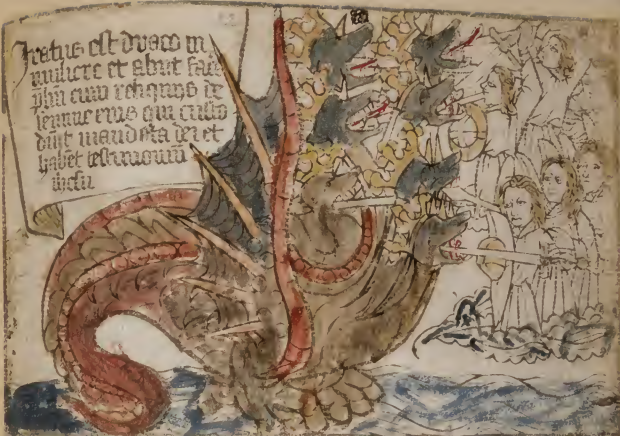 Iratus est draco in
muliere et abiit fac
pliu cum reliquos de
semine eius qui custo
diut mandata dei et
habet testimoniu
ihesu